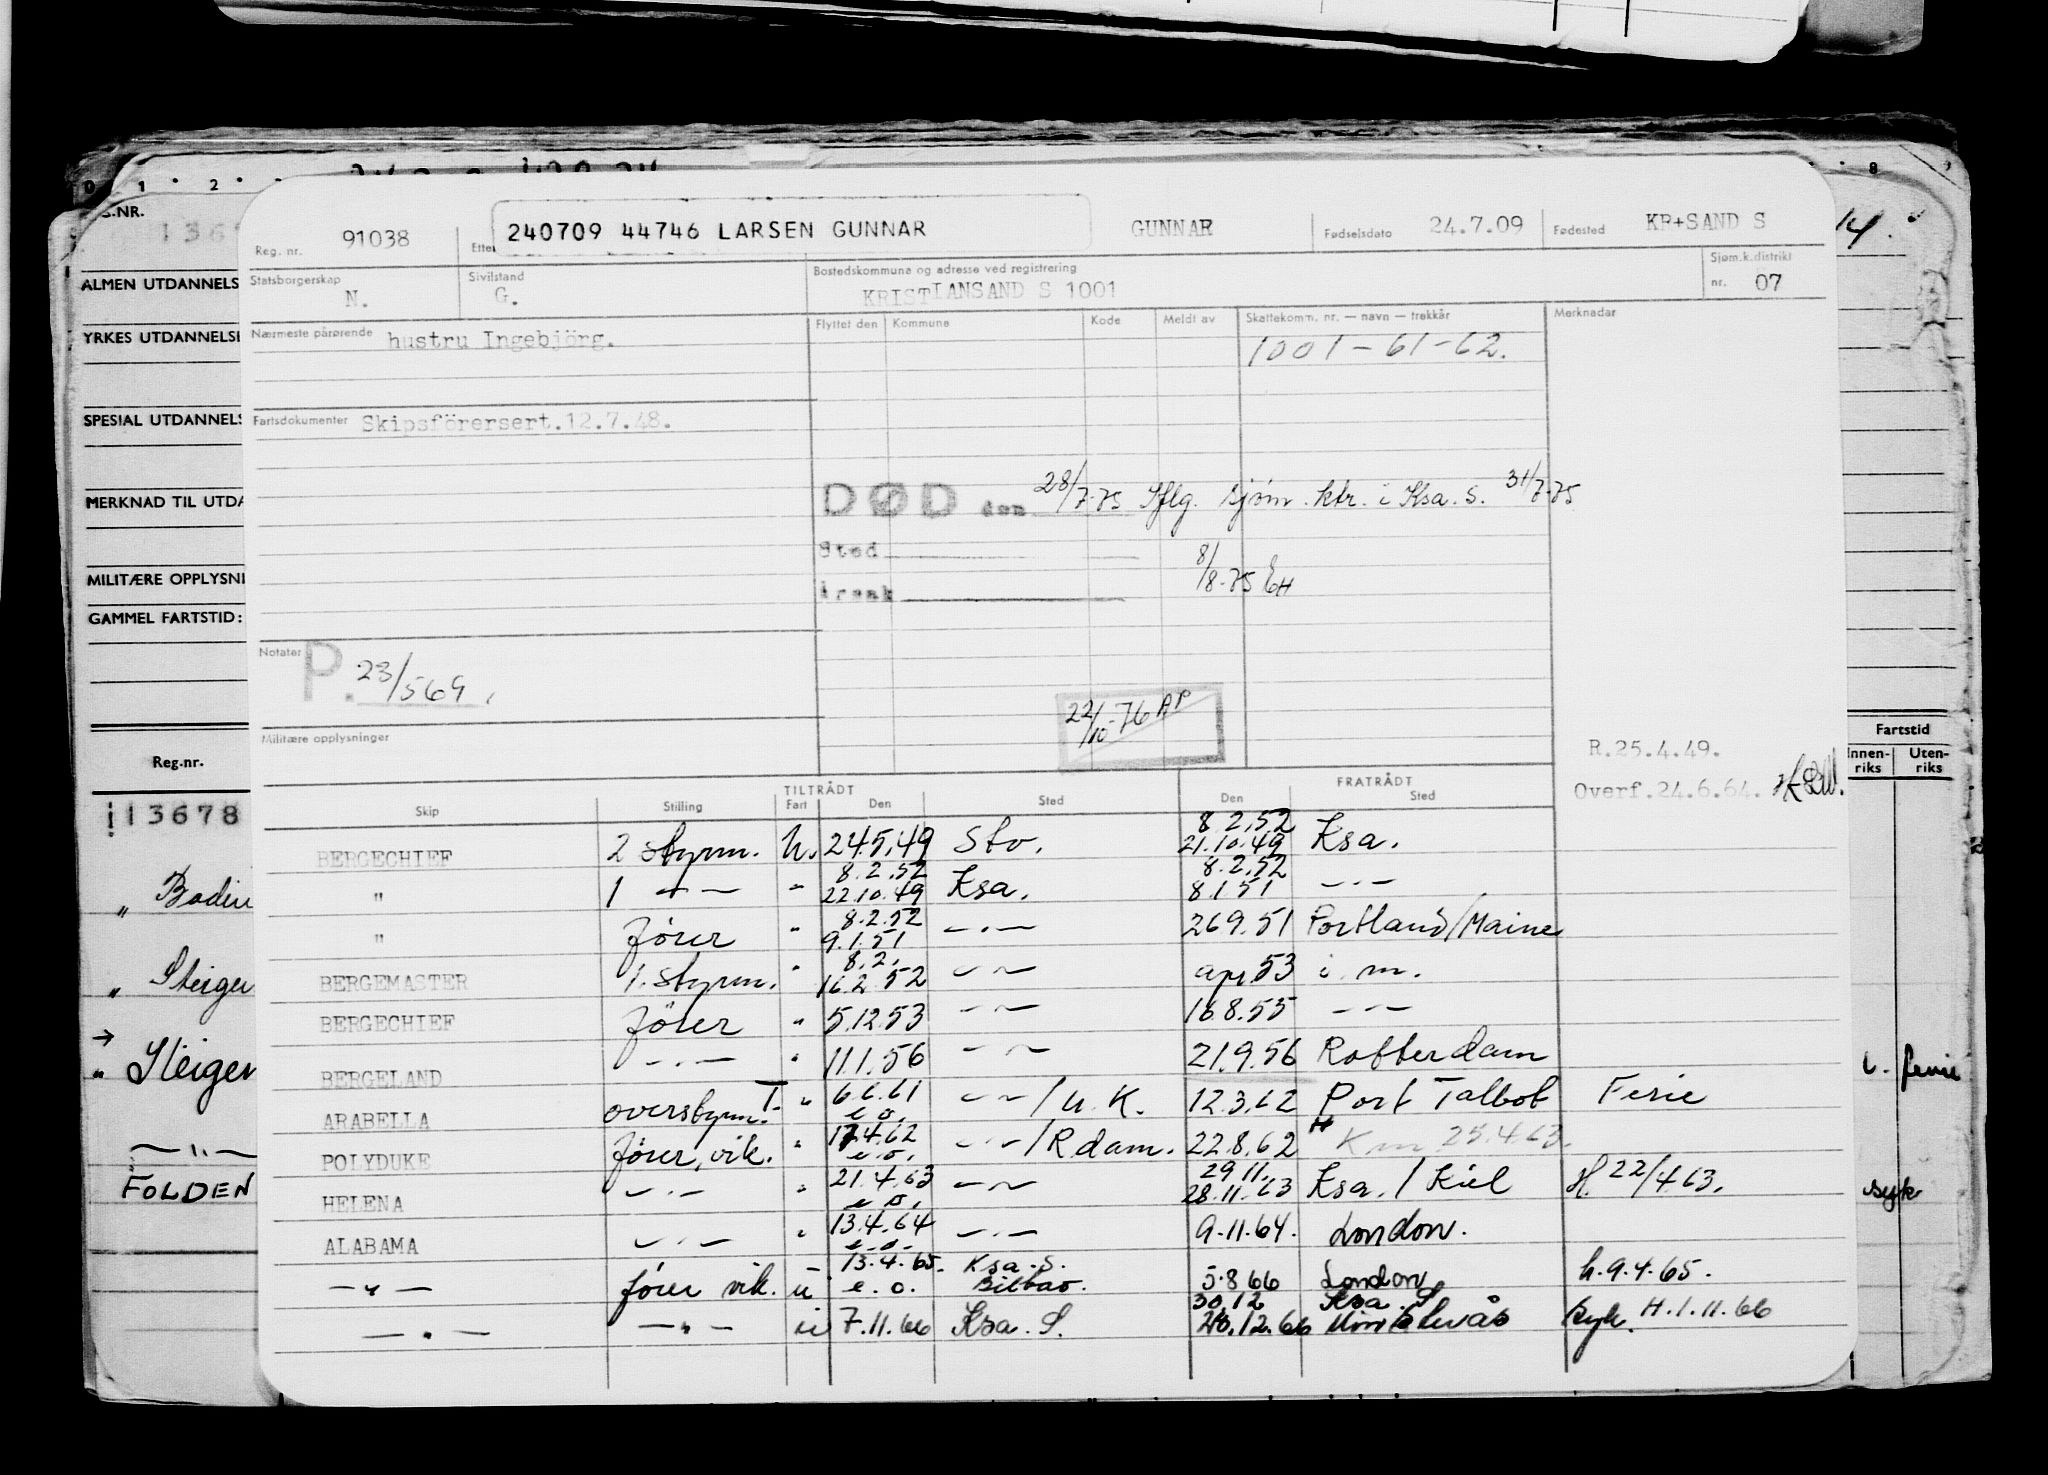 0 1 2 8
S.NR. 1 3 6
Reg. nr. 91038 Etter 240709 44746 LARSEN GUNNAR GUNNAR Fødselsdato 24.7.09 Fødested KR+SAND S 14.
ALMEN UTDANNELS Statsborgerskap N. Sivilstand G. Bostedskommune og adresse ved registrering KRISTIANSAND S 1001 Sjøm.k.distrikt nr. 07
YRKES UTDANNELSE Nærmeste pårørende hustru Ingebjörg. Flyttet den Kommune Kode Meldt av Skattekomm. nr. — navn — trekkår Merknader
1001-61-62.
SPESIAL UTDANNELS Fartsdokumenter Skipsförersert.12.7.48.
MERKNAD TIL UTDA
DØD den 28/7-75 Iflg. sjøm. ktr. i Ksa. S. 31/7-75
Sted
MILITÆRE OPPLYSNI
årsak 8/8-75 EH
GAMMEL FARTSTID:
Notater P. 23/569.
22/10-76 AP
Militære opplysninger
Fartstid
Reg.nr. R.25.4.49. Innen-riks Uten-riks
Overf.24.6.64.
TILTRÅDT FRATRÅDT
Skip Stilling Fart Den Sted Den Sted
113678
8.2.52
BERGECHIEF 2 styrm. U. 24.5.49 Sto. 21.10.49 Ksa.
8.2.52 8.2.52
" 1 -"- " 22.10.49 Ksa. 8.1.51 -"-
8.2.52
" fører " 9.1.51 -"- 26.9.51 Portland/Maine
8.2.
BERGEMASTER 1. styrm. " 16.2.52 -"- apr.53 i. m.
BERGECHIEF fører " 5.12.53 -"- 16.8.55 -"-
BERGELAND -"- " 11.1.56 -"- 21.9.56 Rotterdam
ARABELLA overstyrm. T. " 6.6.61 e.o. -"-/U.K. 12.3.62 Port Talbot Ferie
POLYDUKE fører, vik. " 17.4.62 e.o. -"-/R.dam. 22.8.62 Km 25.4.63.
29.11.
HELENA -"- " 21.4.63 e.o. -"- 28.11.63 Ksa./Kiel H. 22/4.63.
ALABAMA -"- " 13.4.64 e.o. -"- 9.11.64. London.
13.4.65. Ksa. S.
-"- fører vik. u e.o. Bilbao. 5.8.66 London h.9.4.65.
30.12 Ksa. S
-"- -"- u 7.11.66 Ksa. S. .12.66 syk. H.1.11.66
" Bodin
" Steiger
→ " Steiger
-"-
FOLDEN
ferie
syk